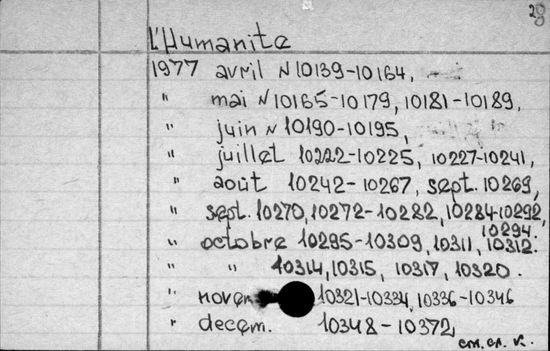 28
L'Humanite
1977 avril N 10139-10164,
" mai N 10165-10179, 10181-10189,
" juin N 10190-10195,
" juillet 10222-10225, 10227-10241,
" août 10242-10267, sept. 10269,
" sept. 10270, 10272-10282, 10284-10292,
10294
" octobre 10295-10309, 10311, 10312.
" " 10314, 10315, 10317, 10320.
" novem 10321-10334, 10336-10346
" decem. 10348-10372,
см. сл. к.